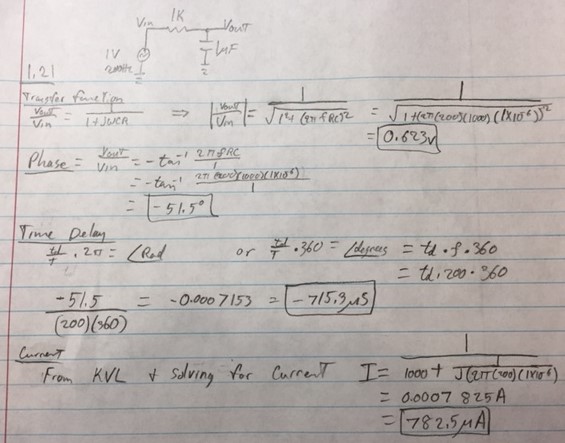 Vin 1K Vout
1V 200Hz 1µF
1.21
Transfer function
Vout/Vin = 1/(1+JWCR) ⇒ |Vout/Vin| = 1/√(1²+(2πfRC)²) = 1/√(1+(2π(200)(1000)(1x10⁻⁶))²)
= 0.623v
Phase = Vout/Vin = -tan⁻¹ 2πfRC/1
= -tan⁻¹ 2π(200)(1000)(1x10⁻⁶)/1
= -51.5°
Time Delay
td/T · 2π = ∠Rad or td/T · 360 = ∠degrees = td · f · 360
= td · 200 · 360
-51.5/(200)(360) = -0.0007153 = -715.3µS
Current
From KVL + solving for Current I = 1/(1000 + 1/(J(2π(200)(1x10⁻⁶)))
= 0.0007825A
= 782.5µA